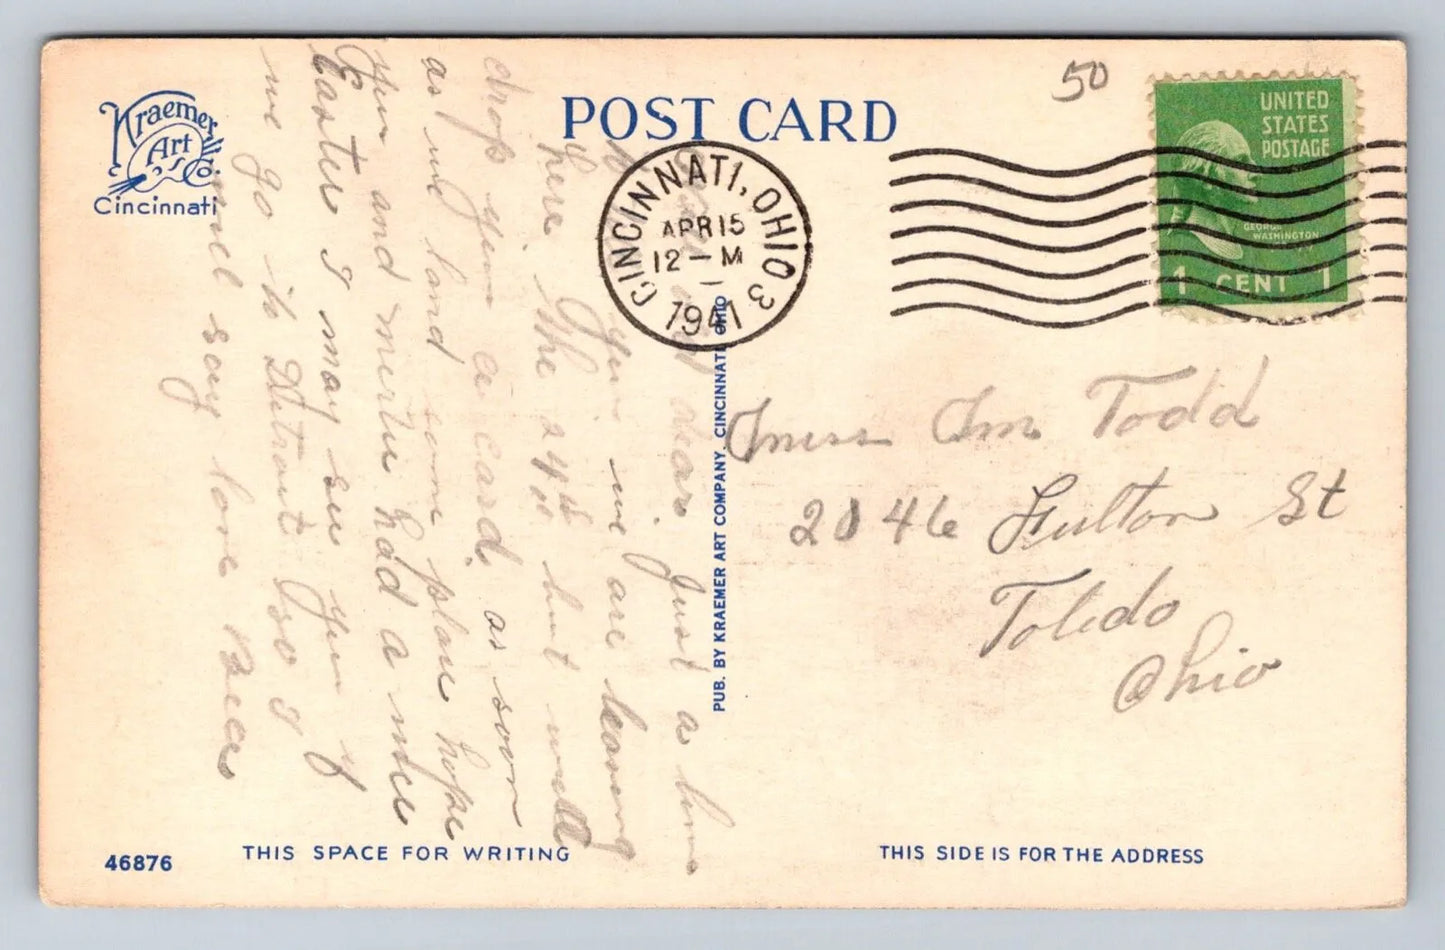 Kraemer
Art
Co.
Cincinnati
POST CARD
50
UNITED
STATES
POSTAGE
GEORGE
WASHINGTON
1 CENT 1
CINCINNATI, OHIO 3
APR 15
12 - M
1941
dear Just a line
you we are leaving
here the 24th but will
drop you a card. as soon
as we land some place hope
you and Mertie had a nice
Easter I may see you if
we go to Detroit so I
will say love
PUB. BY KRAEMER ART COMPANY, CINCINNATI, OHIO
Todd
2046 Fulton St
Toledo
Ohio
46876
THIS SPACE FOR WRITING
THIS SIDE IS FOR THE ADDRESS